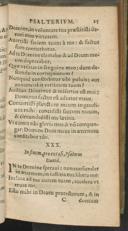 PSALTERIVM. 25
Domine in voluntate tua præstitisti decori meo virtutem.
Auertisti faciem tuam à me: & factus sum conturbatus.
Ad te Domine clamabo: & ad Deum meum deprecabor.
Quæ vtilitas in sanguine meo: dum descendo in corruptionem?
Nunquid confitebitur tibi puluis: aut annunciabit veritatem tuam?
Audiuit Dominus & misertus est mei: Dominus factus est adiutor meus.
Conuertisti planctum meum in gaudium mihi: conscidisti saccum meum, & circumdedisti me lætitia.
Vt cantet tibi gloria mea & non compungar: Domine Deus meus in æternum confitebor tibi.
XXX.
In finem, Psalmus Dauid.
IN te Domine speraui: non confundar in æternum: in iustitia tua libera me.
Inclina ad me aurem tuam:
Esto mihi in Deum protectorem: & in
C